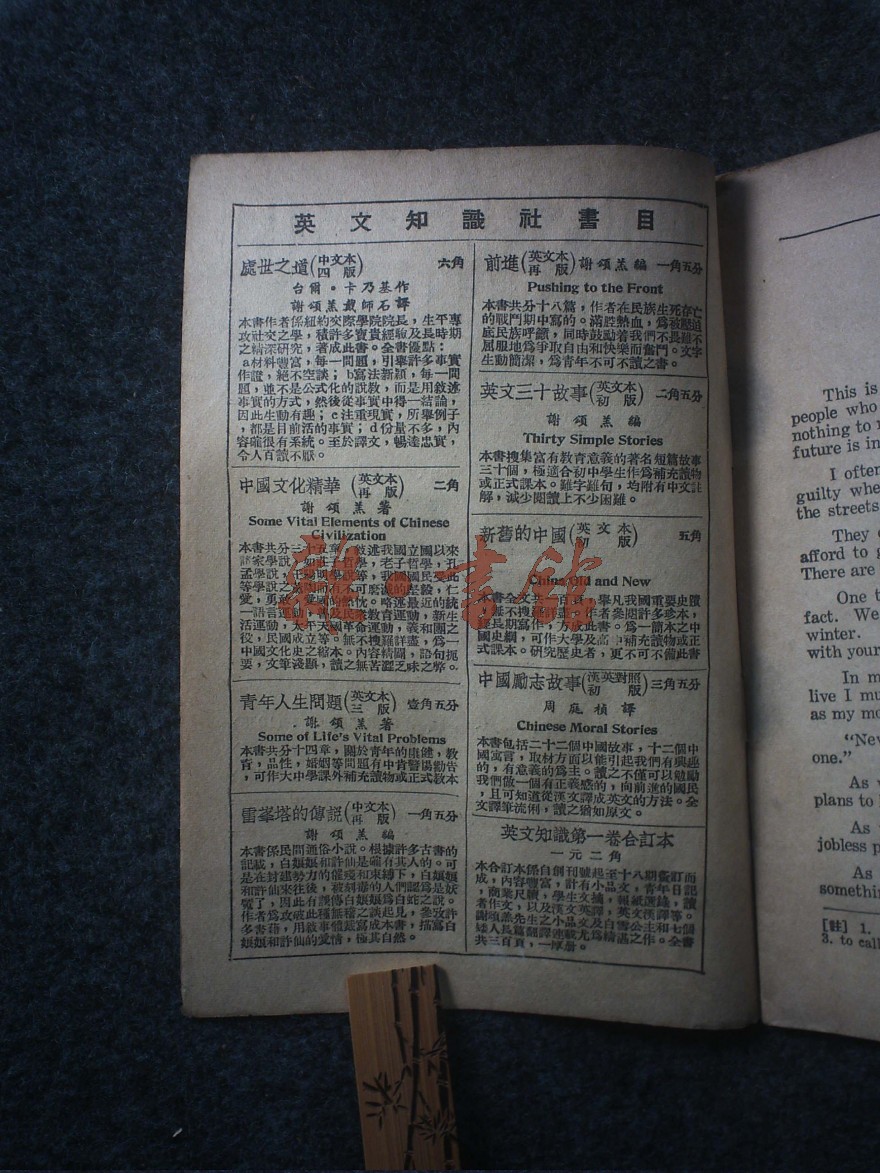 英文知識社書目
處世之道(中文本四版) 六角
台爾・卡乃基作
謝頌羔戴師石譯
本書作者係紐約交際學院院長，生平專
攻社交之學，積許多寶貴經驗及長時期
之精深研究，著成此書。全書優點：
a材料豐富，每一問題，引舉許多事實
作證，絕不空談；b寫法新穎，每一問
題，並不是公式化的說教，而是用敘述
事實的方式，然後從事實中得一結論，
因此生動有趣；c注重現實，所舉例子
，都是目前活的事實；d份量不多，內
容龐很有系統。至於譯文，暢達忠實，
令人百讀不厭。
中國文化精華(英文本再版) 二角
謝頌羔著
Some Vital Elements of Chinese
Civilization
本書共分三十五章，敘述我國立國以來
諸家學說，如莊子哲學，老子哲學，孔
孟學說，王陽明學說等，我國國民受此
等學說之
愛，勇敢，愛國的熱忱。略述最近的統
一語言運動，普及民衆教育運動，新生
活運動，太平天國革命運動，義和團之
役，民國成立等。無不搜羅詳盡，爲一
中國文化史之縮本。內容精闢，語句扼
要，文筆淺顯，讀之無苦澀乏味之弊。
青年人生問題(英文本三版) 壹角五分
謝頌羔著
Some of Life's Vital Problems
本書共分十四章，關於青年的康健，教
育，品性，婚姻等問題有中肯警惕勸告
，可作大中學課外補充讀物或正式敎本
雷峯塔的傳說(中文本再版) 一角五分
謝頌羔編
本書係民間通俗小說。根據許多古書的
記載，白娘娘和許仙是確有其人的。可
是在封建勢力的摧殘和束縛下，白娘娘
和許仙來往後，被刻毒的人們認爲是妖
孼了，因此有誤傳白娘娘爲白蛇之說。
作者爲攻破此種無稽之談起見，參攷許
多書藉，用敘事體裁寫成本書，描寫白
娘娘和許仙的愛情，極其自然。
前進(英文本再版) 謝頌羔編 一角五分
Pushing to the Front
本書共分十八篇，作者在民族生死存亡
的戰鬥期中寫的。滿腔熱血，爲被壓迫
民族呼籲，同時鼓勵着我們不長難不
屈服地爲爭取自由和快樂而奮鬥。文字
生動簡潔，爲青年不可不讀之書。
英文三十故事(英文本初版) 二角五分
謝頌羔編
Thirty Simple Stories
本書搜集富有教育意義的著名短篇故事
三十個，極適合初中學生作爲補充讀物
或正式課本。難字難句，均附有中文註
解，減少閱讀上不少困難。
新舊的中國(英文本初版) 五角
China Old and New
本書全文共一百頁，舉凡我國重要史蹟
，無不搜羅詳盡，作者參閱許多珍本，
經長期寫作，方成此書。爲一簡本之中
國史綱，可作大學及高中補充讀物或正
式課本。研究歷史者，更不可不備此書
中國勵志故事(漢英對照初版) 三角五分
周庭楨譯
Chinese Moral Stories
本書包括二十二個中國故事，十二個中
國寓言，取材方面以能引起我們有興趣
的，有意義的爲主。讀之不僅可以勉勵
我們做一個有正義感的，向前進的國民
，且可知道從漢文譯成英文的方法。全
文譯筆流俐，讀之猶如原文。
英文知識第一卷合訂本
一元二角
本合訂本係自創刊號起至十八期彙訂而
成，內容豐富，計有小品文，青年日記
，商業尺牘，學生文摘，報紙選錄，讀
者作文，以及漢文英譯，英文漢譯等。
謝頌羔先生之小品文及白雪公主和七個
矮人長篇翻譯連載尤爲精湛之作。全書
共三百頁，一厚册。
雜・書館
This is
people who
nothing to
future is in
I often
guilty whe
the streets
They
afford to g
There are
One t
fact. We
winter.
with your
In m
live I mu
as my mo
"Nev
one."
As
plans to
As
jobless p
As
somethin
[註] 1.
3. to cal